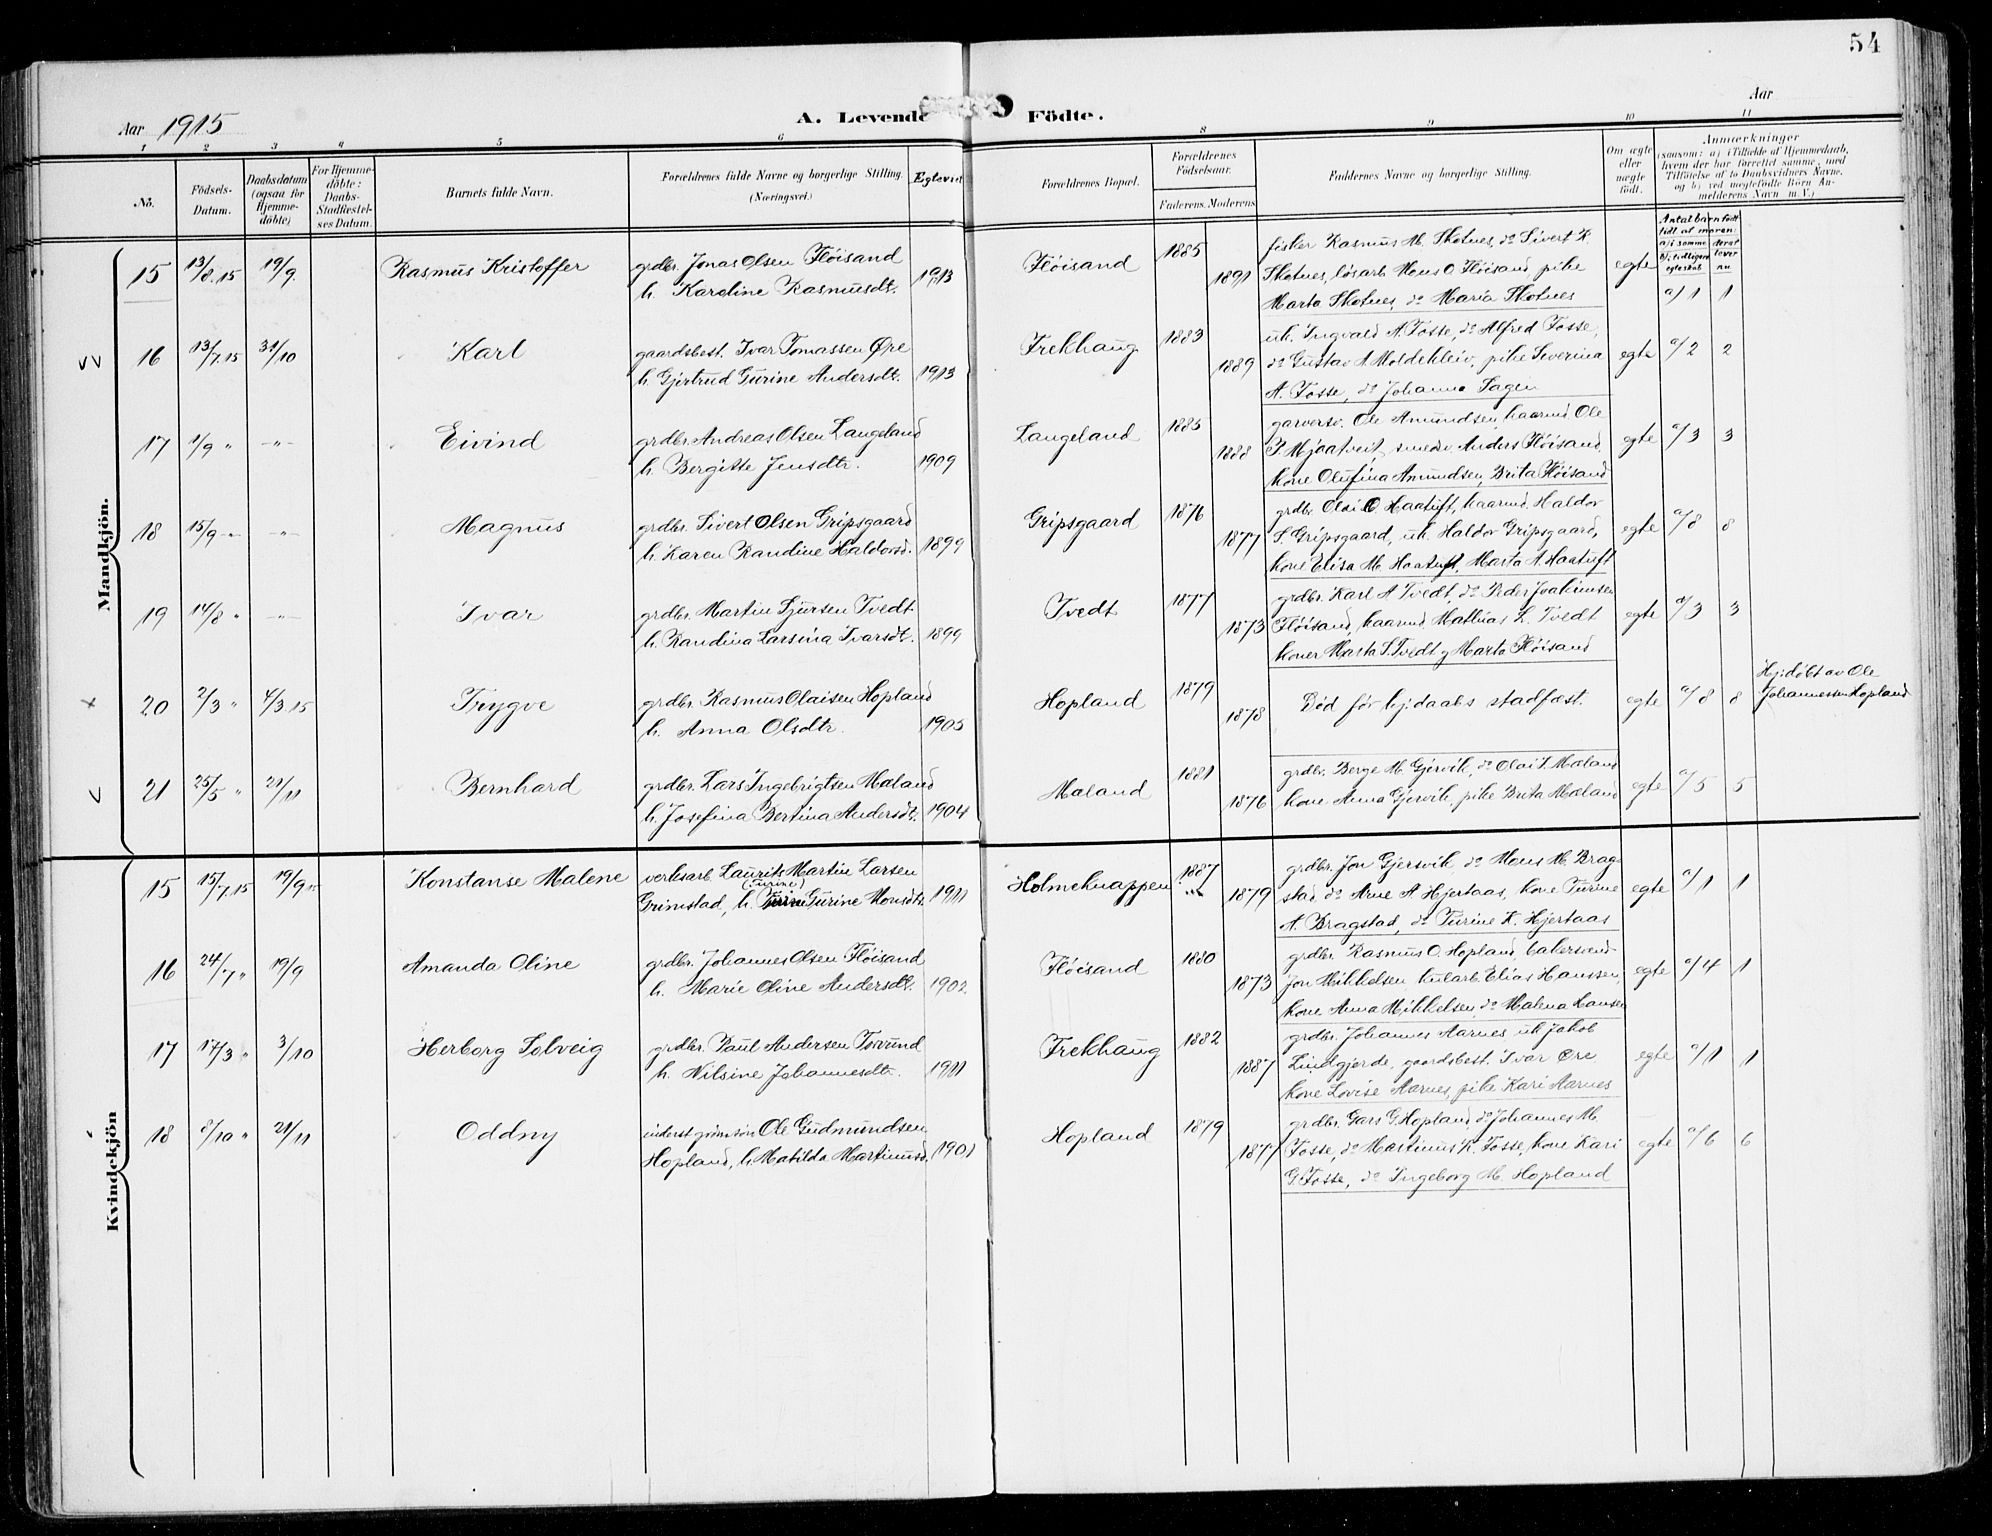 54
Aar 1915
A. Levende Födte.
Aar
1 2 3 4 5 6 8 9 10 11
No.
Födsels-Datum.
Daabsdatum (ogsaa for Hjemme-döbte)
For Hjemme-döbte: Daabs-Stadfestel-ses Datum.
Barnets fulde Navn.
Forældrenes fulde Navne og borgerlige Stilling. (Næringsvei.)
Egteviet
Forældrenes Bopæl.
Forældrenes Födselsaar.
Faderens. Moderens.
Faddernes Navne og borgerlige Stilling.
Om ægte eller uægte födt.
Anmærkninger
(saasom: a) i Tilfælde af Hjemmedaab, hvem der har forrettet samme, med Tilföielse af to Daabsvidners Navne, og b) ved uægtefödte Börn An-melderens Navn m. V.)
Antal barn födt
tidl. af moren:
a) i samme
b) i tidligere egteskab
Mandkjön.
15 13/8.15 19/9. Rasmus Kristoffer
grdbr. Jonas Olsen Flöisand
h. Karoline Rasmusdt. 1913
Flöisand 1885 1891
fisker Rasmus M. Skotnes, do Sivert K.
Skotnes, lösarb. Mons O. Flöisand, pike
Marta Skotnes, do Maria Skotnes
egte a/1 1
16 13/7.15 31/10 Karl
gaardsbest. Ivar Tomassen Øre
h. Gjertrud Gurine Andersdt. 1913
Frekhaug 1883 1889
uk. Ingvald A. Fosse, do Alfred Fosse,
do Gustav A. Moldekleiv, pike Severina
A. Fosse, do Johanna Hagen
egte a/2 2
17 1/9 " -"- Eivind
grdbr. Andreas Olsen Langeland
h. Bergitte Jensdtr. 1909
Langeland 1885 1888
garversv. Ole Amundsen, haarmd Ole
P. Mjaatveit, smedsv. Anders Flöisand,
kone Olufina Amundsen, Brita Flöisand
egte a/3 3
18 15/9 -"- -"- Magnus
grdbr. Sivert Olsen Gripsgaard
h. Karen Randine Haldorsd. 1899
Gripsgaard 1876 1877
grdbr. Olai O Haatuft, kaarmd. Haldor
S. Gripsgaard, uk. Haldor Gripsgaard,
kone Elisa M. Haatuft, Marta A. Haatuft
egte a/8 8
19 14/8 " -"- Ivar
grdbr. Martin Sjursen Tvedt
h. Randina Larsina Ivarsdt. 1899
Tvedt 1877 1873
grdbr. Karl A Tvedt, do Peder Joakimsen
Flöisand, kaarmd. Mathias L. Tvedt
koner Marta S. Tvedt og Marta Flöisand
egte a/3 3
20 2/3 " 4/3.15 Trygve
grdbr. Rasmus Olaisen Hopland
h. Anna Olsdtr. 1905
Hopland 1879 1878
Död för hj.daabs stadfæst.
egte a/8 8
Hj.döbt av Ole
Johannessen Hopland
21 25/5 " 21/11 Bernhard
grdbr. Lars Ingebrigtsen Mæland
h. Josefina Bertina Andersdt. 1904
Mæland 1881 1876
grdbr. Berge M. Gjervik, do Olai I. Mæland
kone Anna Gjervik, pike Brita Mæland
egte a/5 5
Kvindekjön
15 15/7.15 19/9 15 Konstanse Malene
verksarb. Laurits Martin Larsen
(Turine)
Grimstad, h. Gurine Monsdtr. 1911
Holmeknappen 1887 1879
grdbr. Jon Gjersvik, do Mons M. Brag-
stad, do Arne A. Hjertaas, kone Turine
A. Bragstad, do Turine K. Hjertaas
egte a/1 1
16 24/7 " 19/9 Amanda Oline
grdbr. Johannes Olsen Flöisand
h. Marie Oline Andersdt. 1902.
Flöisand 1880 1873
grdbr. Rasmus O. Hopland, bakersvend
Jon Mikkelsen, kularb. Elias Hanssen,
kone Anna Mikkelsen, do Malena Hansen
egte a/4 1
17 17/3 " 3/10 Herborg Solveig
grdbr. Paul Andersen Torsund
h. Nilsine Johannesdtr. 1911
Frekhaug 1882 1887
grdbr. Johannes Aarnes, uk. Jakob
Lindgjerde, gaardsbest. Ivar Øre
kone Lovise Aarnes, pike Kari Aarnes
egte a/1 1
18 8/10 " 21/11 Oddny
inderst Ole Gudmundsen
Hopland, h. Matilda Martinusd. 1901
Hopland 1879 1877
grdbr. Lars G. Hopland, do Johannes M.
Fosse, do Martinus K. Fosse, kone Kari
G. Fosse, do Ingeborg M. Hopland
egte a/6 6